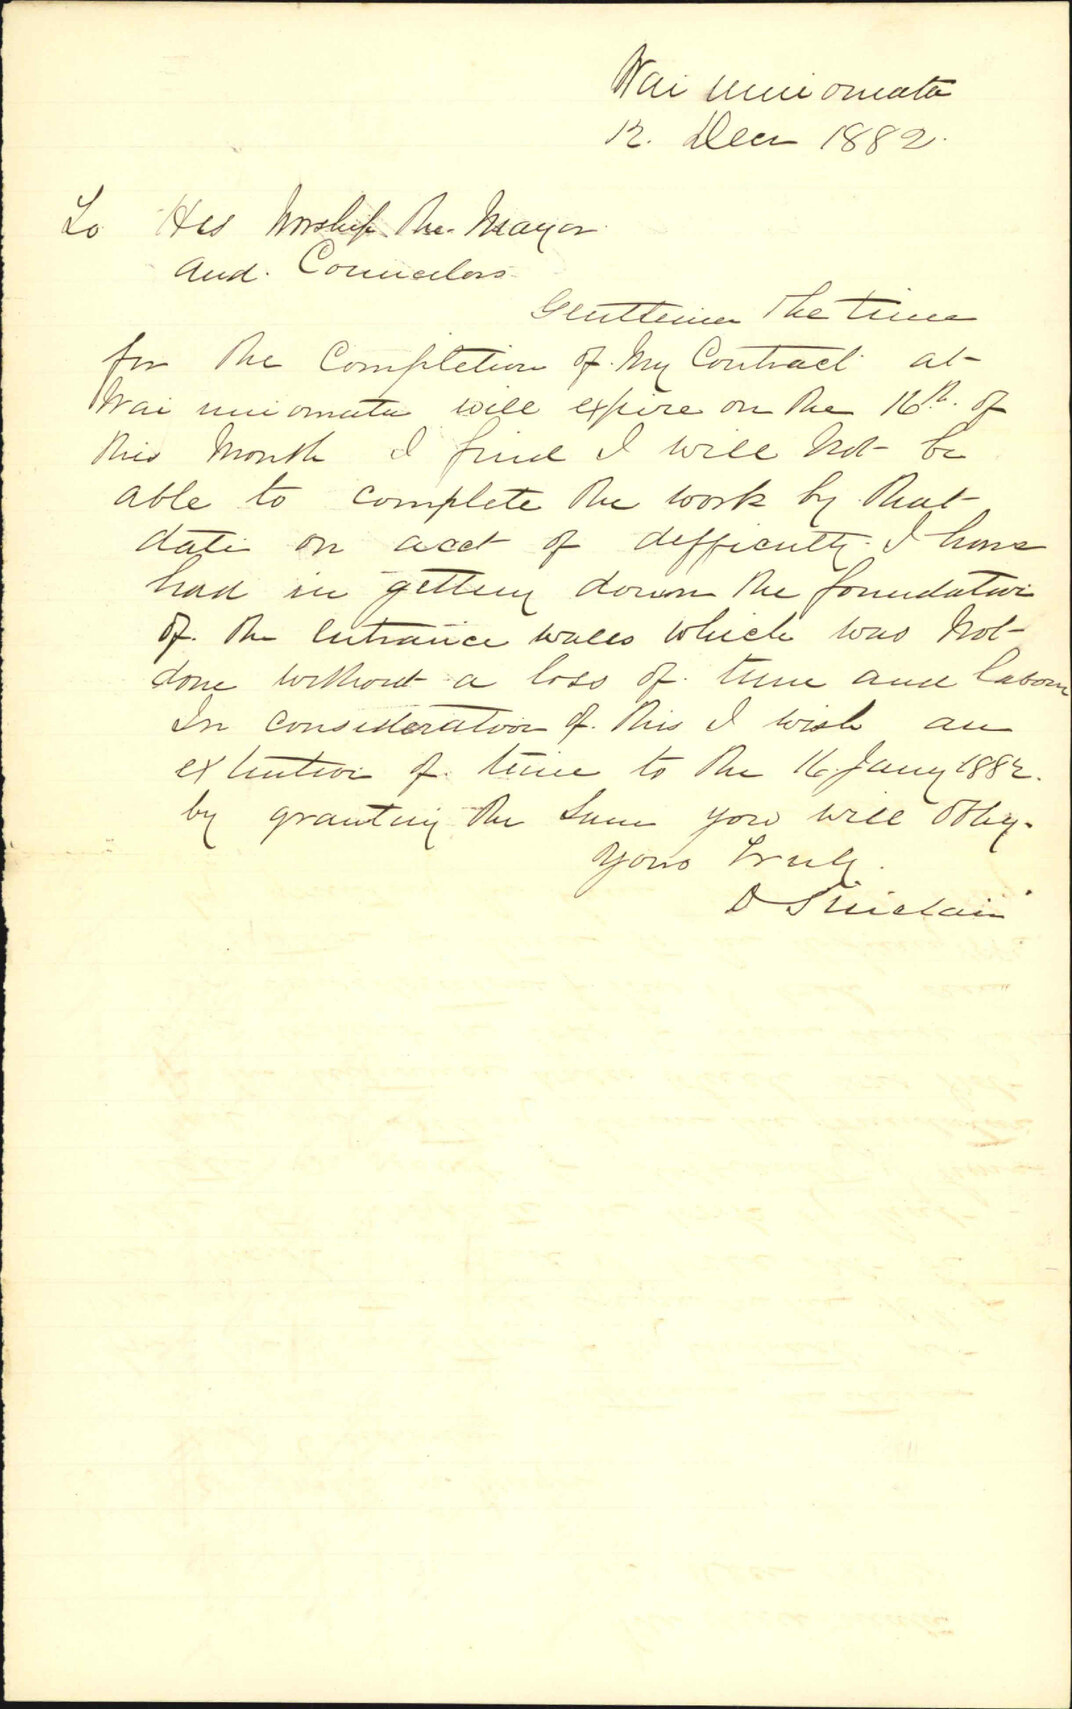 Wai nui omata
12. Decr 1882.
To His Worship the Mayor
and. Councelors
Gentlemen The time
for the Completion of My Contract at
Wai nui omata will expire on the 16th. of
this Month I find I will Not be
able to complete the work by that
date on acct of difficulty I have
had in getting down the foundation
of. the entrance walls which was Not
done without a loss of time and labour
In consideration of. this I wish an
extention of time to the 16 Jany 1882.
by granting the Same you will Oblig.
Yours Truly.
D Sinclair